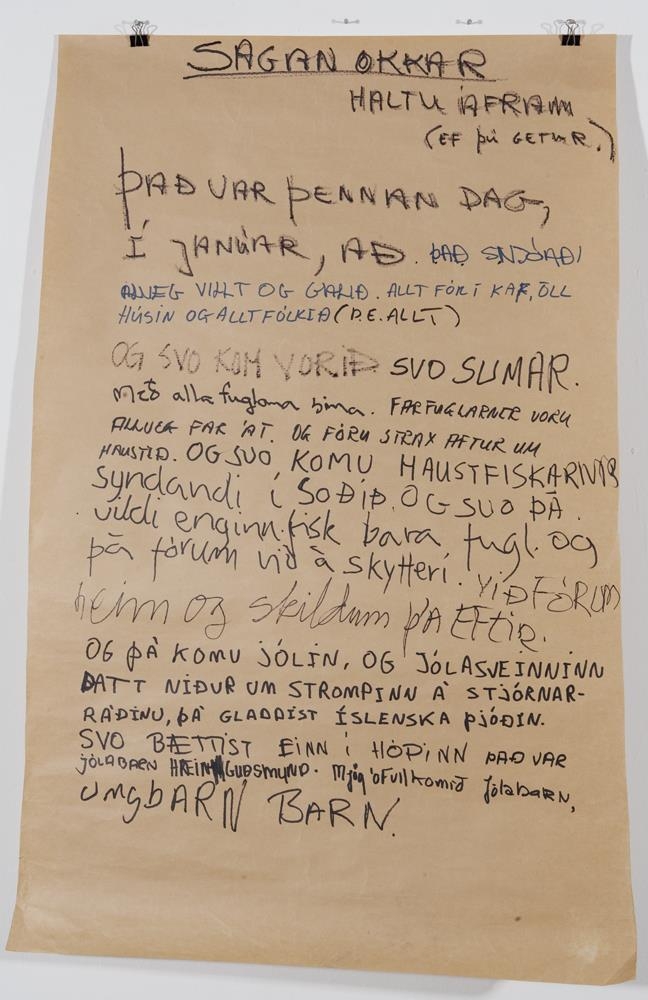 SAGAN OKKAR
HALTU ÁFRAM
(EF ÞÚ GETUR.)
ÞAÐ VAR ÞENNAN DAG,
Í JANÚAR, AÐ. ÞAÐ SNJÓAÐI
ALVEG VILLT OG GALIÐ. ALLT FÓR Í KAF, ÖLL
HÚSIN OG ALLT FÓLKIÐ (Þ.E. ALLT)
OG SVO KOM VORIÐ SVO SUMAR.
Með alla fuglana sína. FARFUGLARNIR VORU
ALLVEG FAR ÁT. OG FÓRU STRAX AFTUR UM
HAUSTIÐ. OG SVO KOMU HAUSTFISKARNIR
syndandi í SOÐIÐ. OG SVO ÞÁ
vildi enginn fisk bara fugl. og
þá fórum við á skytterí. VIÐ FÓRUM
heim og skildum þÁ EFTIR.
OG ÞÁ KOMU JÓLIN, OG JÓLASVEINNINN
DATT NIÐUR UM STROMPINN Á STJÓRNAR-
RÁÐINU, ÞÁ GLADDIST ÍSLENSKA ÞJÓÐIN.
SVO BÆTTIST EINN Í HÓPINN ÞAÐ VAR
JÓLABARN HREINN GUÐSMUND. Mjög ófullkomið jólabarn,
UNGBARN BARN.